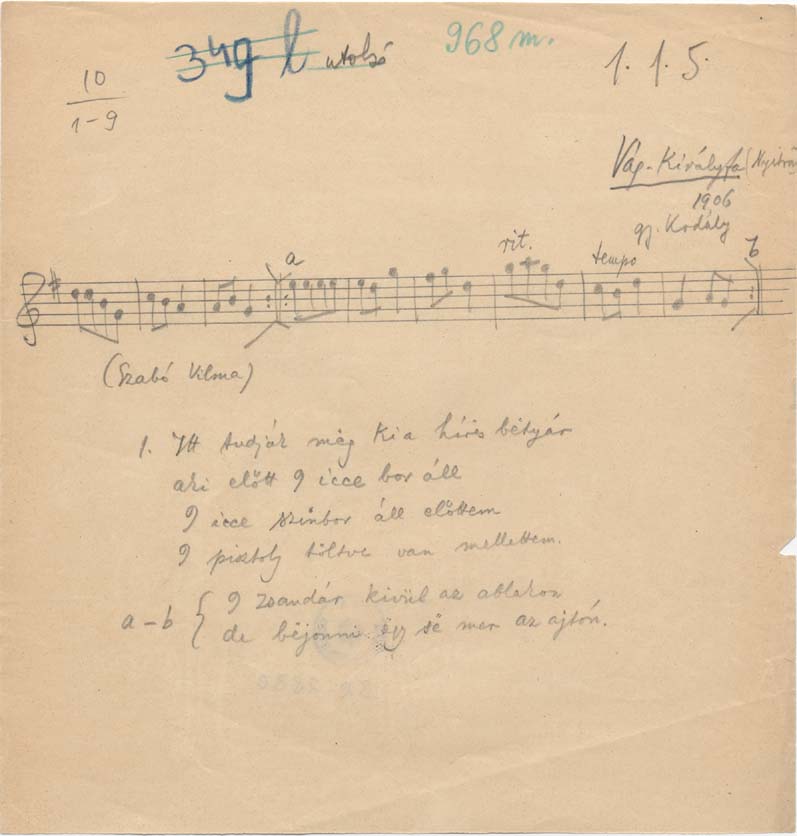 349 l utolsó
968 m.
1. 1. 5.
10
1–9
Vág-Királyfa (Nyitra
1906
gy. Kodály
a
rit.
tempo
b
(Szabó Vilma)
1. Itt tudják még ki a híres bétyár
aki előtt 9 icce bor áll
9 icce szinbor áll előttem
9 pisztoly töltve van mellettem.
a – b { 9 zsandár kivül az ablakon
de béjönni egy së mer az ajtón.